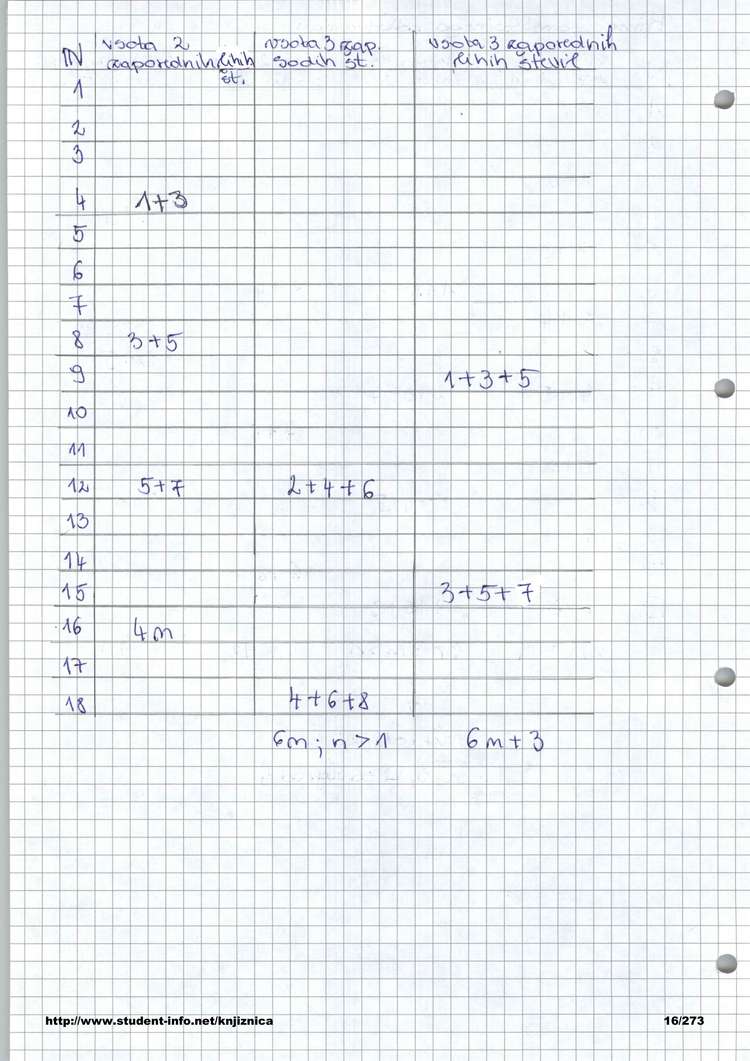 IN vsota 2 zaporednih lihih št. vsota 3 zap. sodih št. vsota 3 zaporednih lihih števil
1
2
3
4 1+3
5
6
7
8 3+5
9 1+3+5
10
11
12 5+7 2+4+6
13
14
15 3+5+7
16 4n
17
18 4+6+8
6n; n>1 6n+3
http://www.student-info.net/knjiznica 16/273